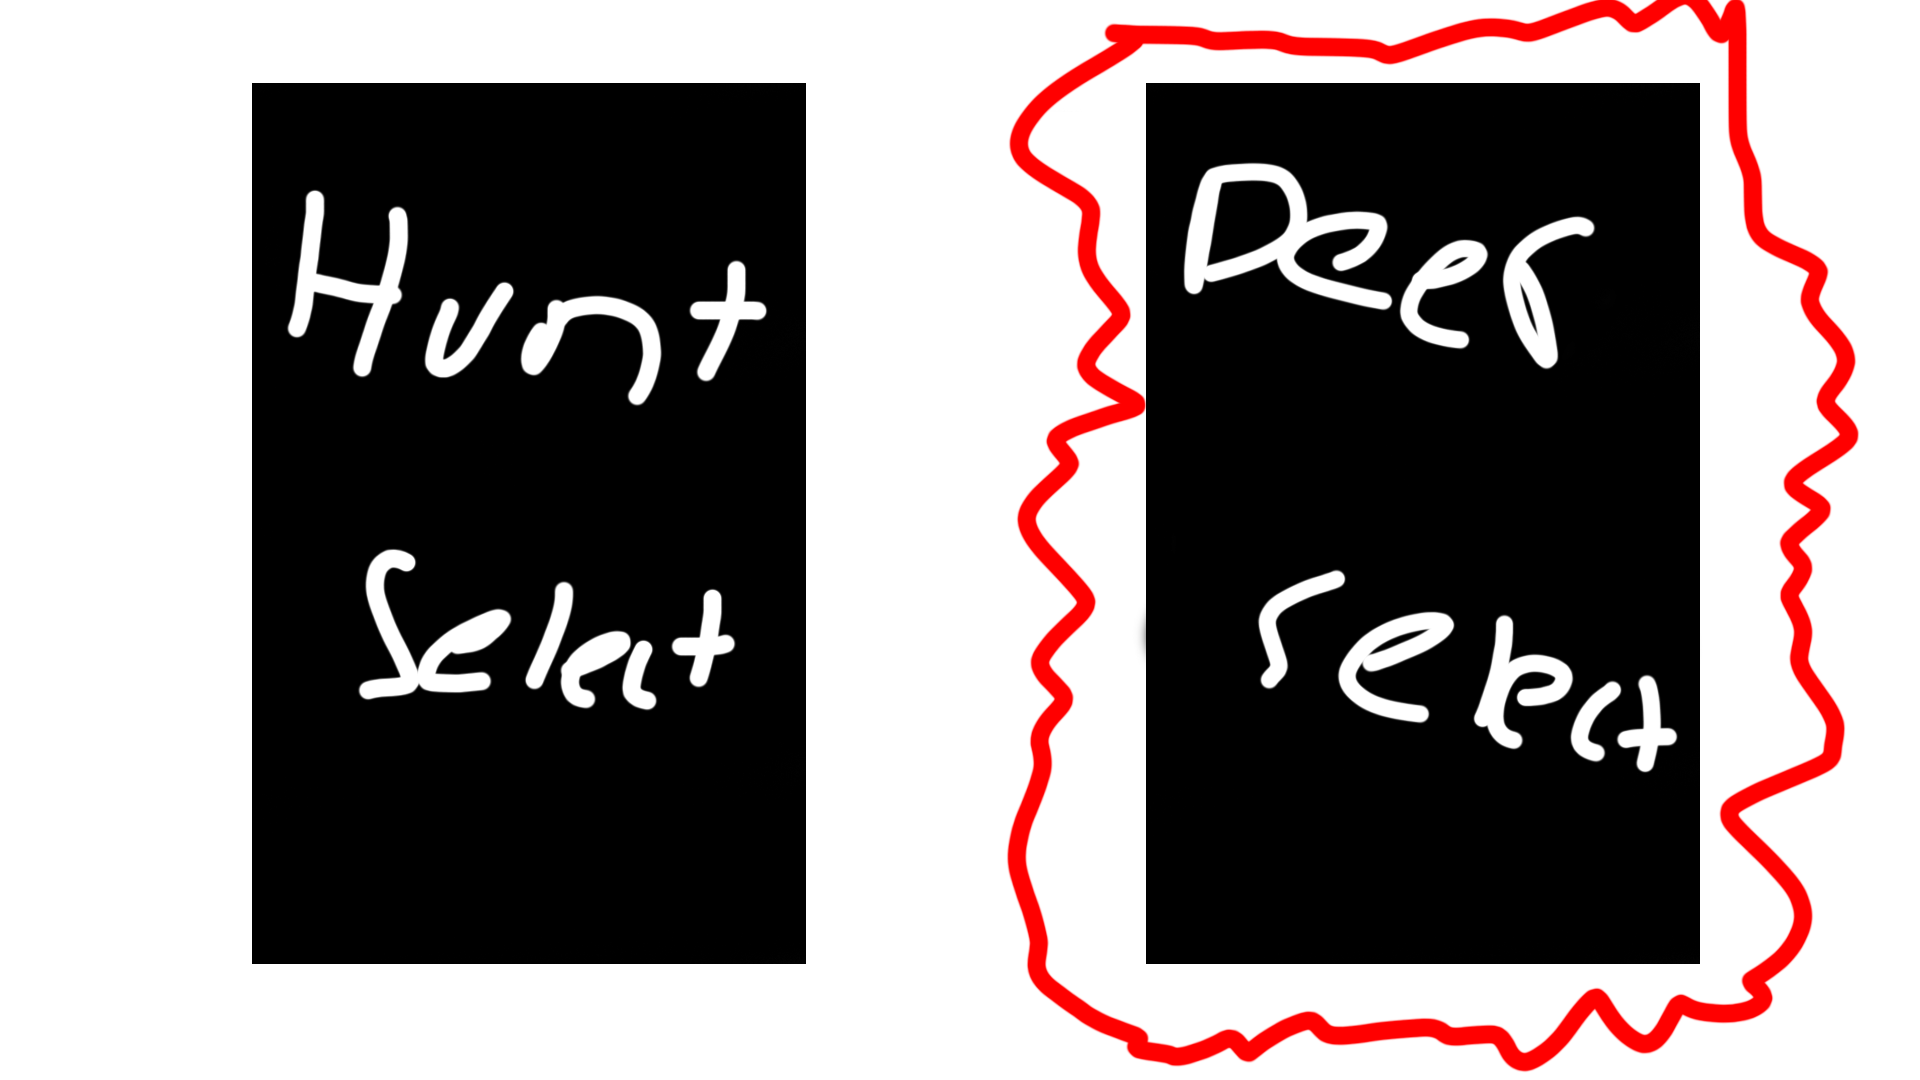 Hunt
Select
Deer
Select